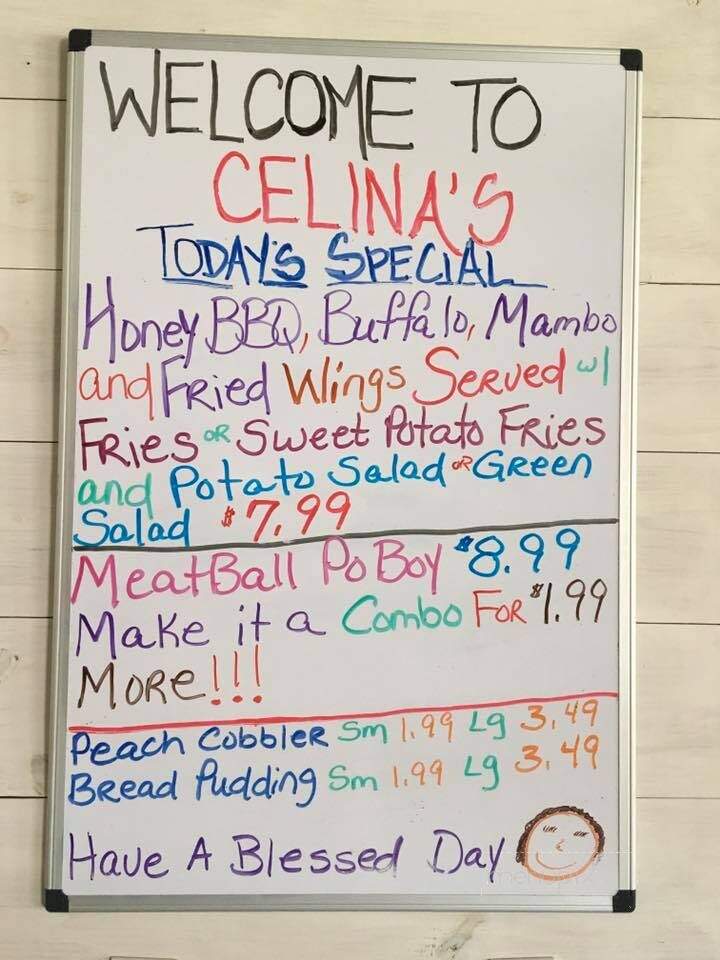 WELCOME TO
CELINA'S
TODAY'S SPECIAL
Honey BBQ, Buffalo, Mambo
and Fried Wings Served w/
Fries or Sweet Potato Fries
and Potato Salad or Green
Salad $7.99
MeatBall Po Boy $8.99
Make it a Combo For $1.99
More!!!
Peach Cobbler Sm 1.99 Lg 3.49
Bread Pudding Sm 1.99 Lg 3.49
Have A Blessed Day